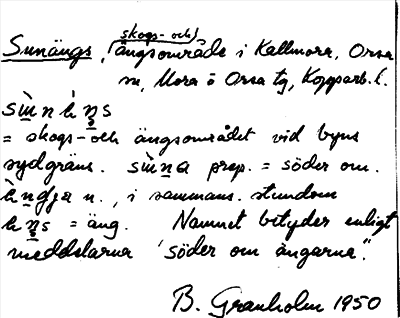 skogs- och
Sunängs, ängsområde i Kallmora, Orsa
sn, Mora o Orsa tg, Kopparb. l.
= skogs- och ängsområdet vid byns
sydgräns. prep. = söder om.
n., i sammans. stundom
= äng. Namnet betyder enligt
meddelarna "söder om ängarna".
B. Granholm 1950